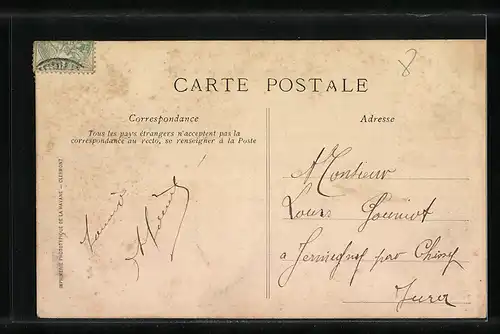 8
CARTE POSTALE
Correspondance
Tous les pays étrangers n'acceptent pas la
correspondance au recto, se renseigner à la Poste
Adresse
A Monsieur
Louis
à par
Jura
IMPRIMERIE PHOTOTYPIQUE DE LA HAVANE — CLERMONT